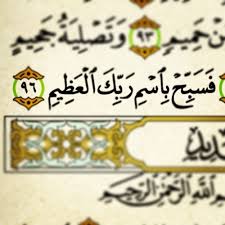 ن حَمِيمٍ ٩٣ وَتَصْلِيَةُ جَحِيمٍ
فَسَبِّحْ بِاسْمِ رَبِّكَ الْعَظِيمِ ٩٦
ديد
مِ اللَّهِ الرَّحْمَٰنِ الرَّحِيمِ